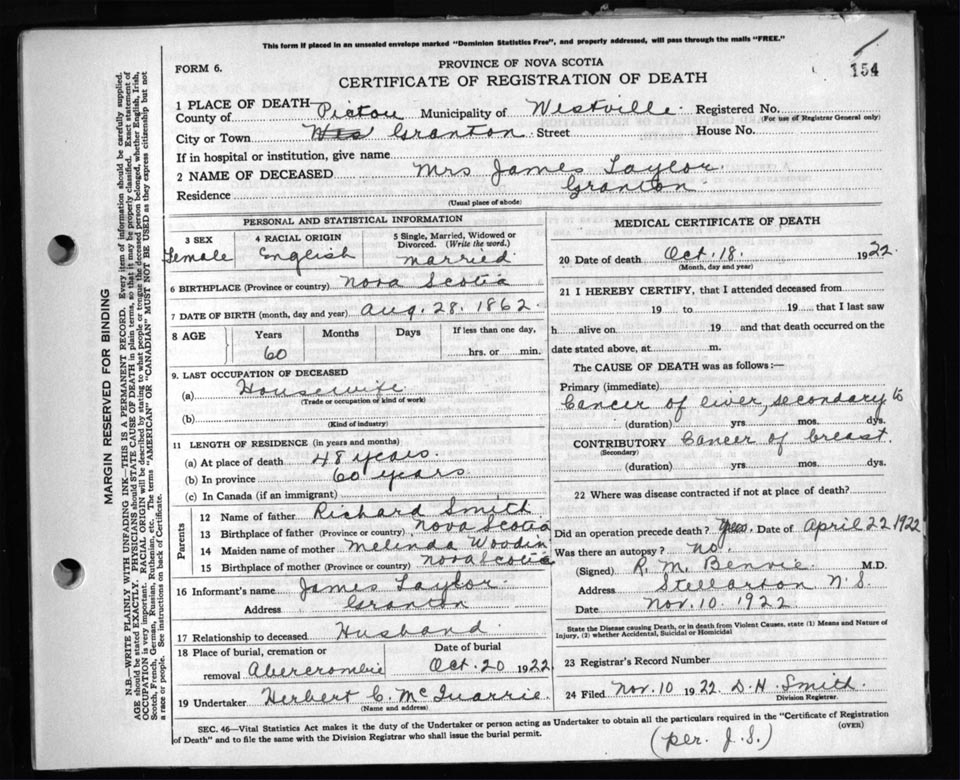 This form if placed in an unsealed envelope marked "Dominion Statistics Free", and properly addressed, will pass through the mails "FREE."
154
FORM 6.
PROVINCE OF NOVA SCOTIA
CERTIFICATE OF REGISTRATION OF DEATH
1 PLACE OF DEATH
County of Pictou Municipality of Westville Registered No.
(For use of Registrar General only)
City or Town Wes Granton Street House No.
If in hospital or institution, give name
2 NAME OF DECEASED Mrs James Taylor
Residence Granton
(Usual place of abode)
PERSONAL AND STATISTICAL INFORMATION
3 SEX 4 RACIAL ORIGIN 5 Single, Married, Widowed or Divorced. (Write the word.)
Female English married
6 BIRTHPLACE (Province or country) Nova Scotia
7 DATE OF BIRTH (month, day and year) Aug. 28. 1862.
8 AGE Years Months Days If less than one day,
60 hrs. or min.
9. LAST OCCUPATION OF DECEASED
(a) Housewife
(Trade or occupation or kind of work)
(b)
(Kind of industry)
11 LENGTH OF RESIDENCE (in years and months)
(a) At place of death 48 years.
(b) In province 60 years
(c) In Canada (if an immigrant)
Parents
12 Name of father Richard Smith
13 Birthplace of father (Province or country) Nova Scotia
14 Maiden name of mother Melinda Woodin
15 Birthplace of mother (Province or country) Nova Scotia
16 Informant's name James Taylor
Address Granton
17 Relationship to deceased Husband
18 Place of burial, cremation or removal Date of burial
Abercrombie Oct. 20 1922
19 Undertaker Herbert C. McQuarrie
(Name and address)
MEDICAL CERTIFICATE OF DEATH
20 Date of death Oct. 18. 1922.
(Month, day and year)
21 I HEREBY CERTIFY, that I attended deceased from
19 to 19 that I last saw
h alive on 19 and that death occurred on the
date stated above, at m.
The CAUSE OF DEATH was as follows:—
Primary (immediate)
Cancer of liver, secondary to
(duration) yrs mos. dys.
CONTRIBUTORY Cancer of breast.
(Secondary)
(duration) yrs mos. dys.
22 Where was disease contracted if not at place of death?
Did an operation precede death? Yes. Date of April 22 1922
Was there an autopsy? No.
(Signed) R. M. Benvie M.D.
Address Stellarton N.S.
Date Nov. 10. 1922
State the Disease causing Death, or in death from Violent Causes, state (1) Means and Nature of
Injury, (2) whether Accidental, Suicidal or Homicidal
23 Registrar's Record Number
24 Filed Nov. 10 1922 D. H. Smith.
Division Registrar.
SEC. 46—Vital Statistics Act makes it the duty of the Undertaker or person acting as Undertaker to obtain all the particulars required in the "Certificate of Registration
of Death" and to file the same with the Division Registrar who shall issue the burial permit. (OVER)
(per. J.S.)
MARGIN RESERVED FOR BINDING
N.B.—WRITE PLAINLY WITH UNFADING INK—THIS IS A PERMANENT RECORD. Every item of information should be carefully supplied.
AGE should be stated EXACTLY. PHYSICIANS should STATE CAUSE OF DEATH in plain terms, so that it may be properly classified. Exact statement of
OCCUPATION is very important. RACIAL ORIGIN will be described by stating to what people or tongue the deceased person belonged, whether English, Irish,
Scotch, French, German, Russian, Ruthenian, etc. The terms "AMERICAN" OR "CANADIAN" MUST NOT BE USED as they express citizenship but not
a race or people. See instructions on back of Certificate.